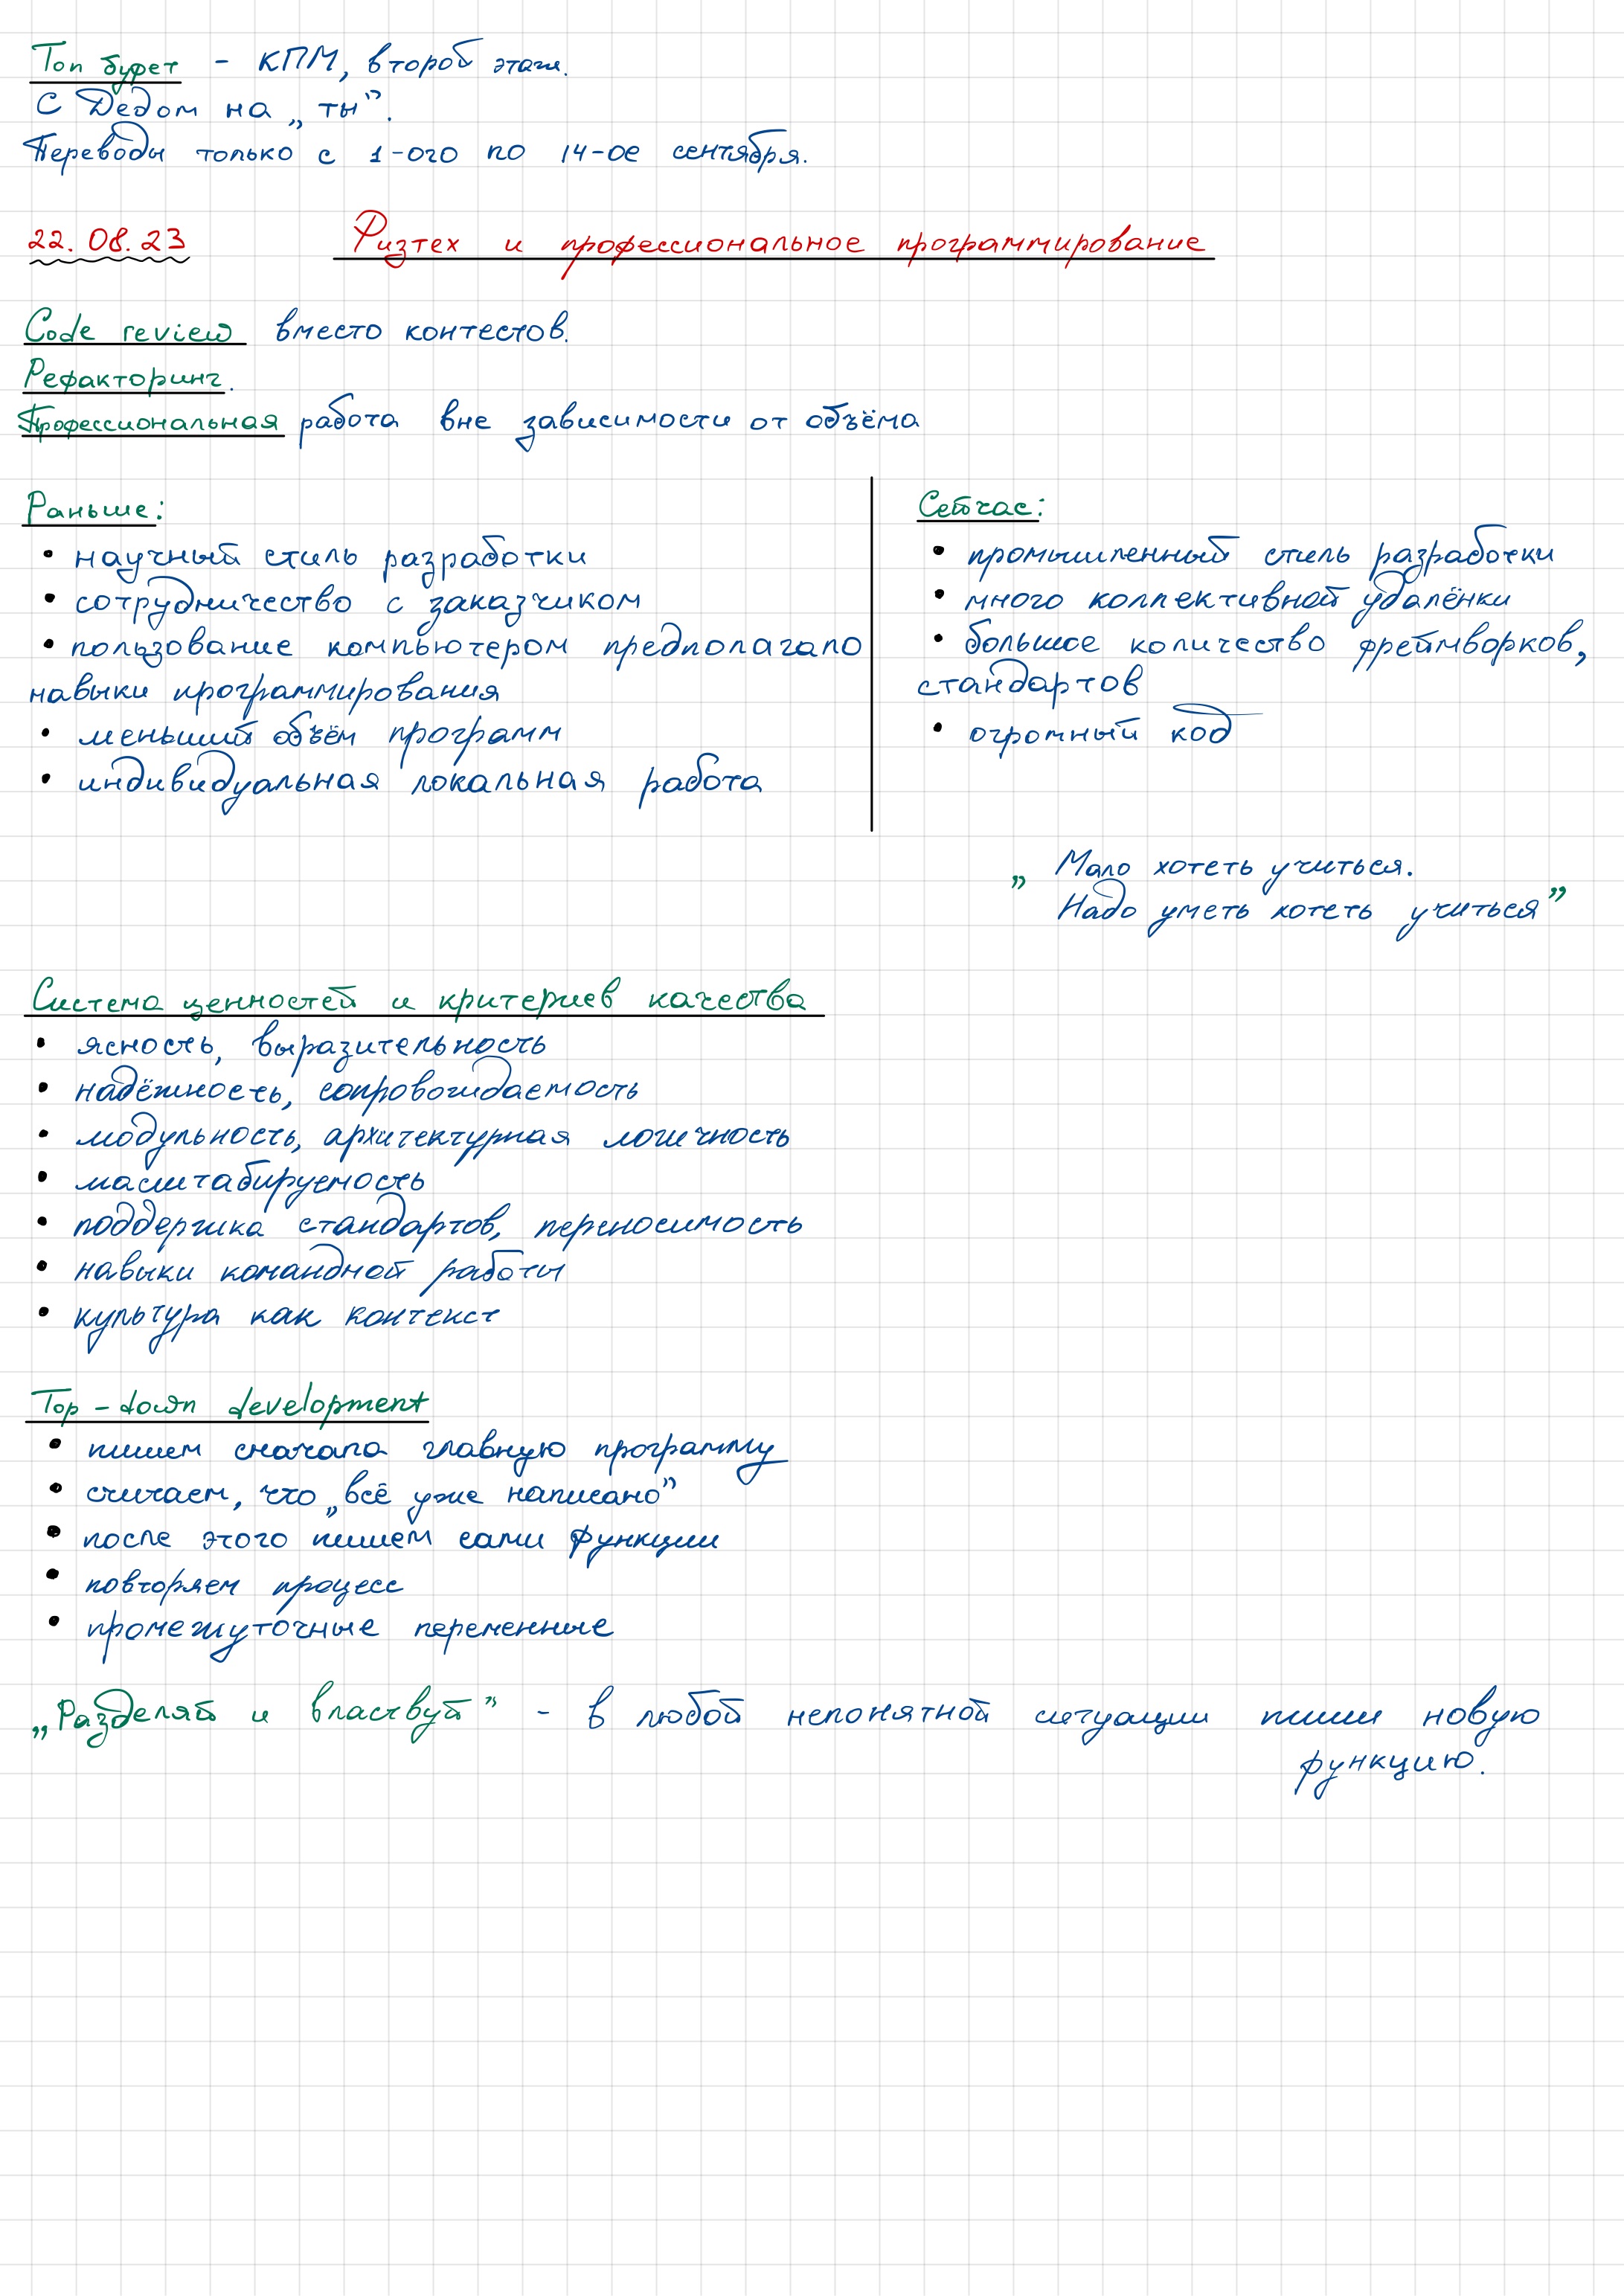 Топ буфет - КПМ, второй этаж.
С Дедом на „ты”.
Переводы только с 1-ого по 14-ое сентября.
22.08.23 Физтех и профессиональное программирование
Code review вместо контестов.
Рефакторинг.
Профессиональная работа вне зависимости от объёма
Раньше:
• научный стиль разработки
• сотрудничество с заказчиком
• пользование компьютером предполагало
навыки программирования
• меньший объём программ
• индивидуальная локальная работа
Сейчас:
• промышленный стиль разработки
• много коллективной удалёнки
• большое количество фреймворков,
стандартов
• огромный код
„ Мало хотеть учиться.
Надо уметь хотеть учиться”
Система ценностей и критериев качества
• ясность, выразительность
• надёжность, сопровождаемость
• модульность, архитектурная логичность
• масштабируемость
• поддержка стандартов, переносимость
• навыки командной работы
• культура как контекст
Top-down development
• пишем сначала главную программу
• считаем, что „всё уже написано”
• после этого пишем сами функции
• повторяем процесс
• промежуточные переменные
„Разделяй и властвуй” - в любой непонятной ситуации пиши новую
функцию.